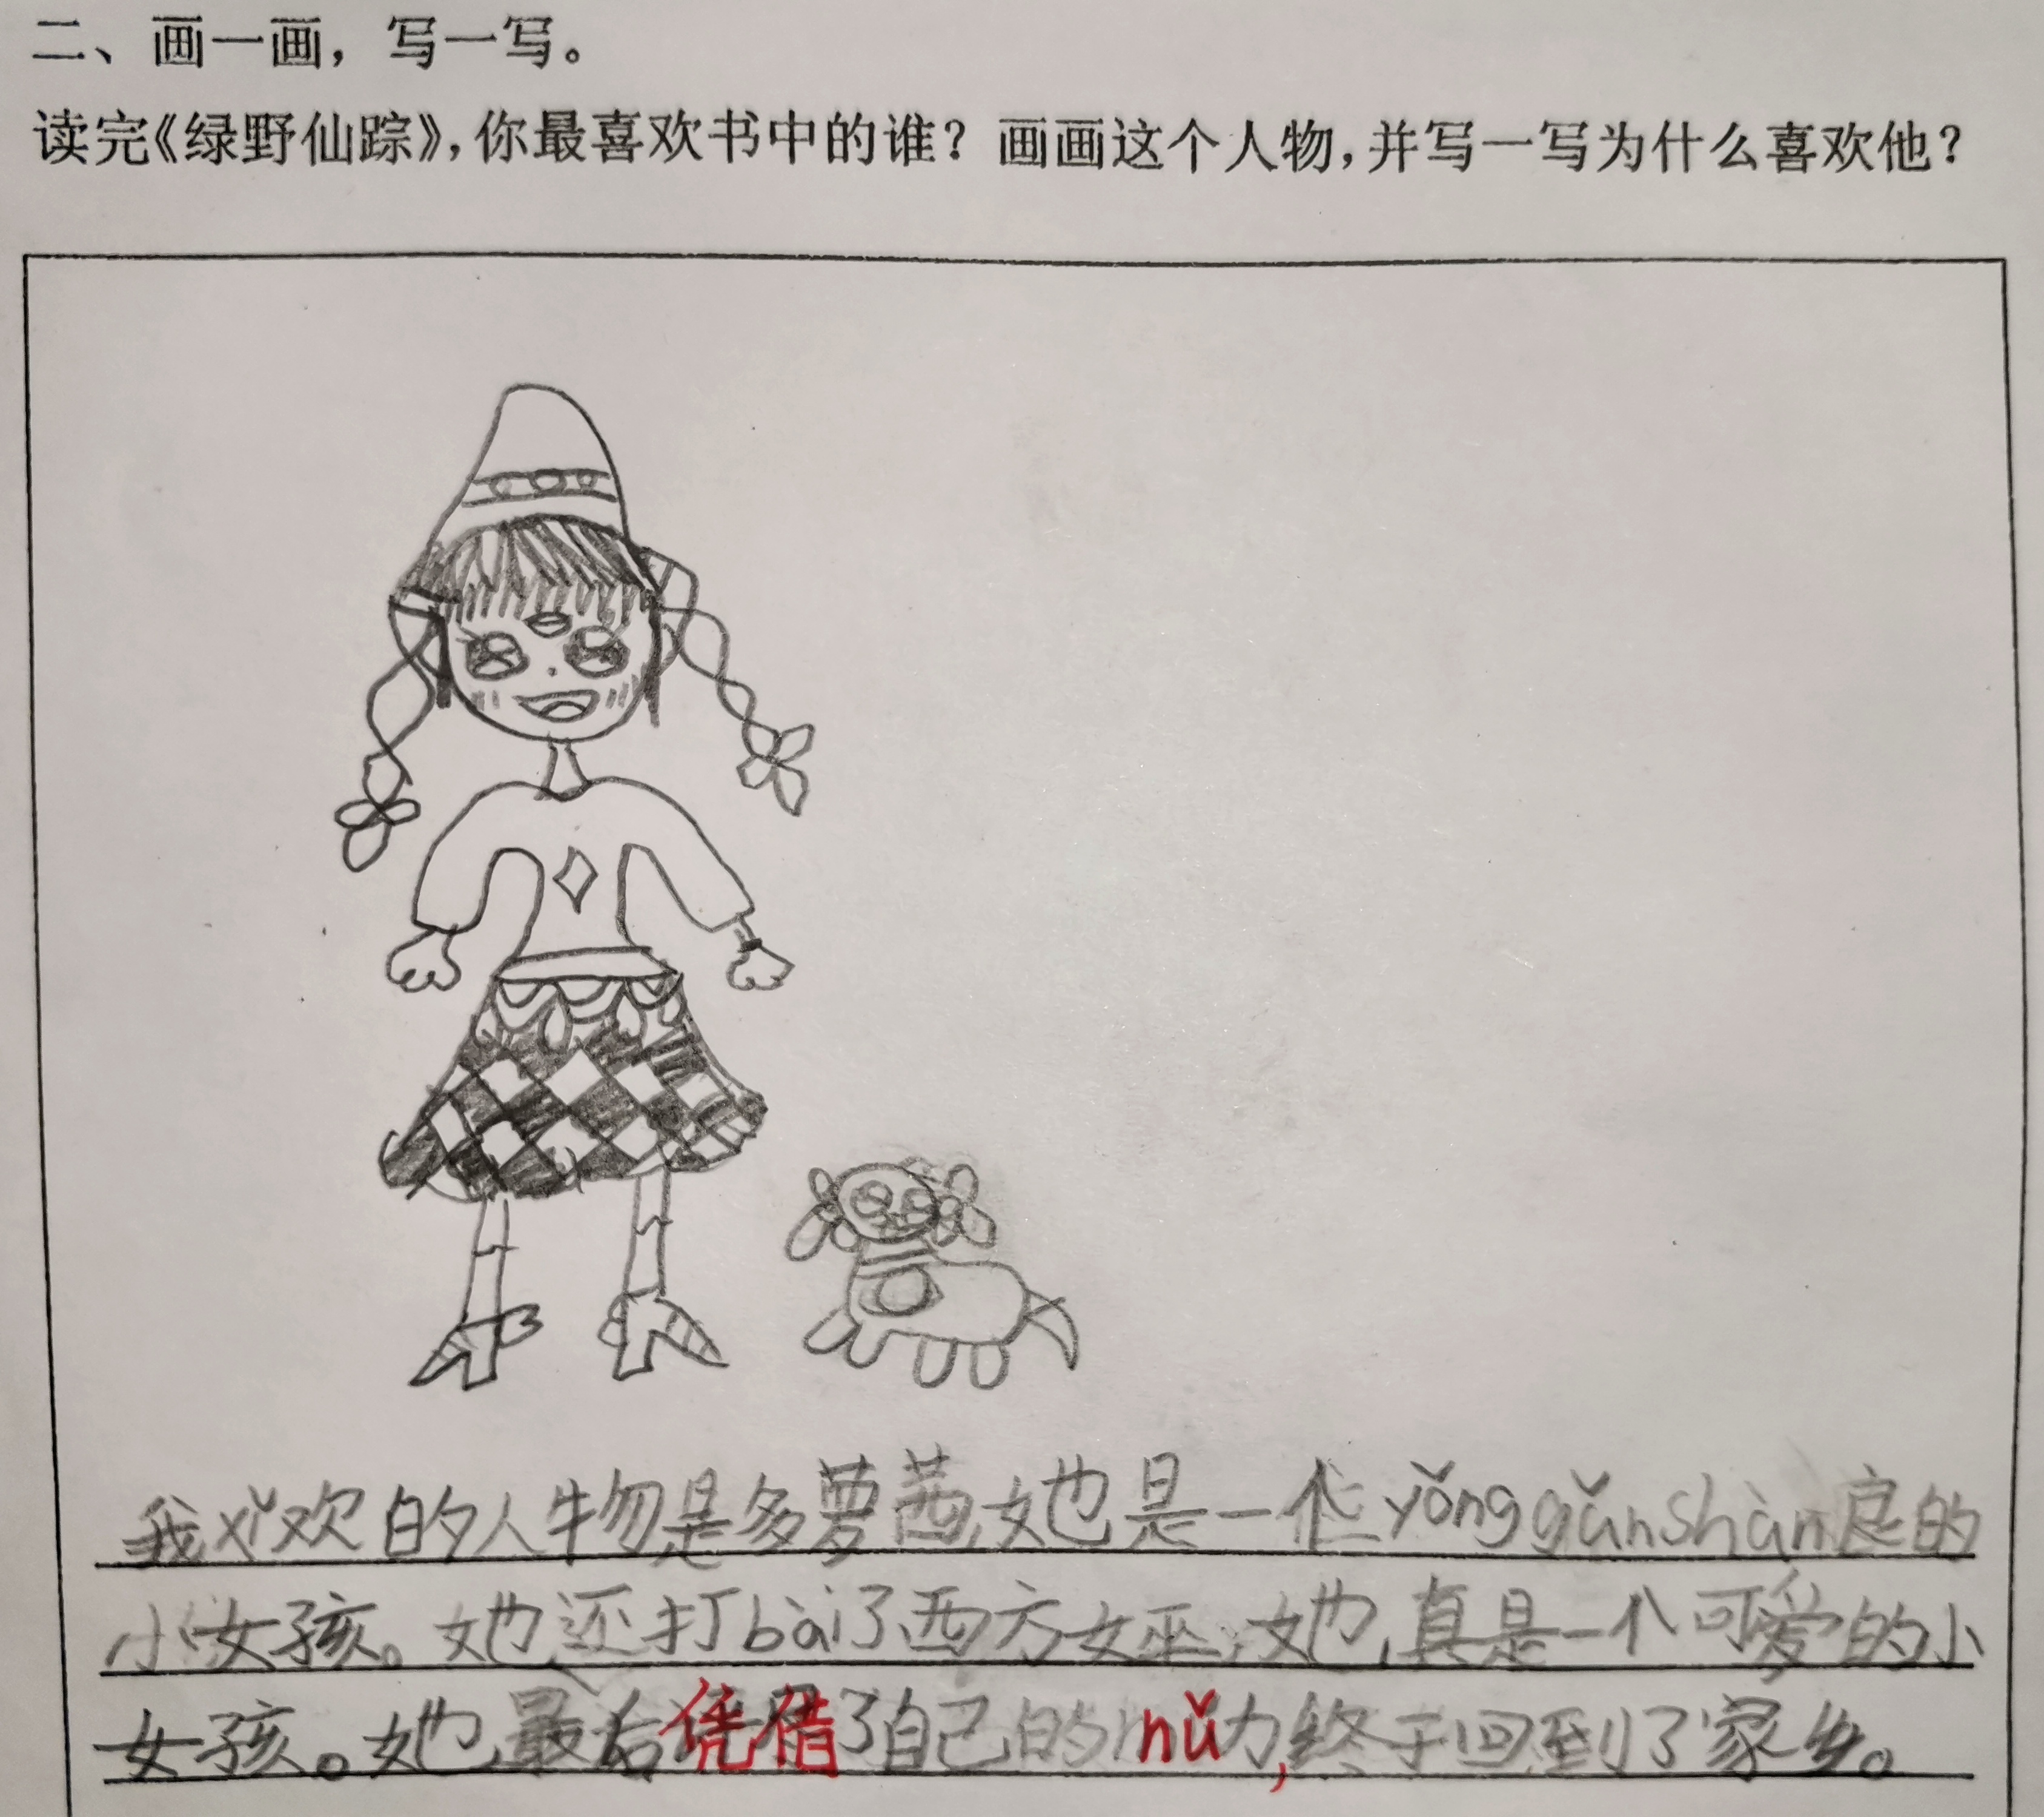 二、画一画，写一写。
读完《绿野仙踪》，你最喜欢书中的谁？画画这个人物，并写一写为什么喜欢他？
我xǐ欢的人物是多萝茜，她是一个yǒnggǎnshàn良的
小女孩。她还打bài了西方女巫，她真是一个可爱的小
女孩。她最后凭借了自己的nǔ力，终于回到了家乡。